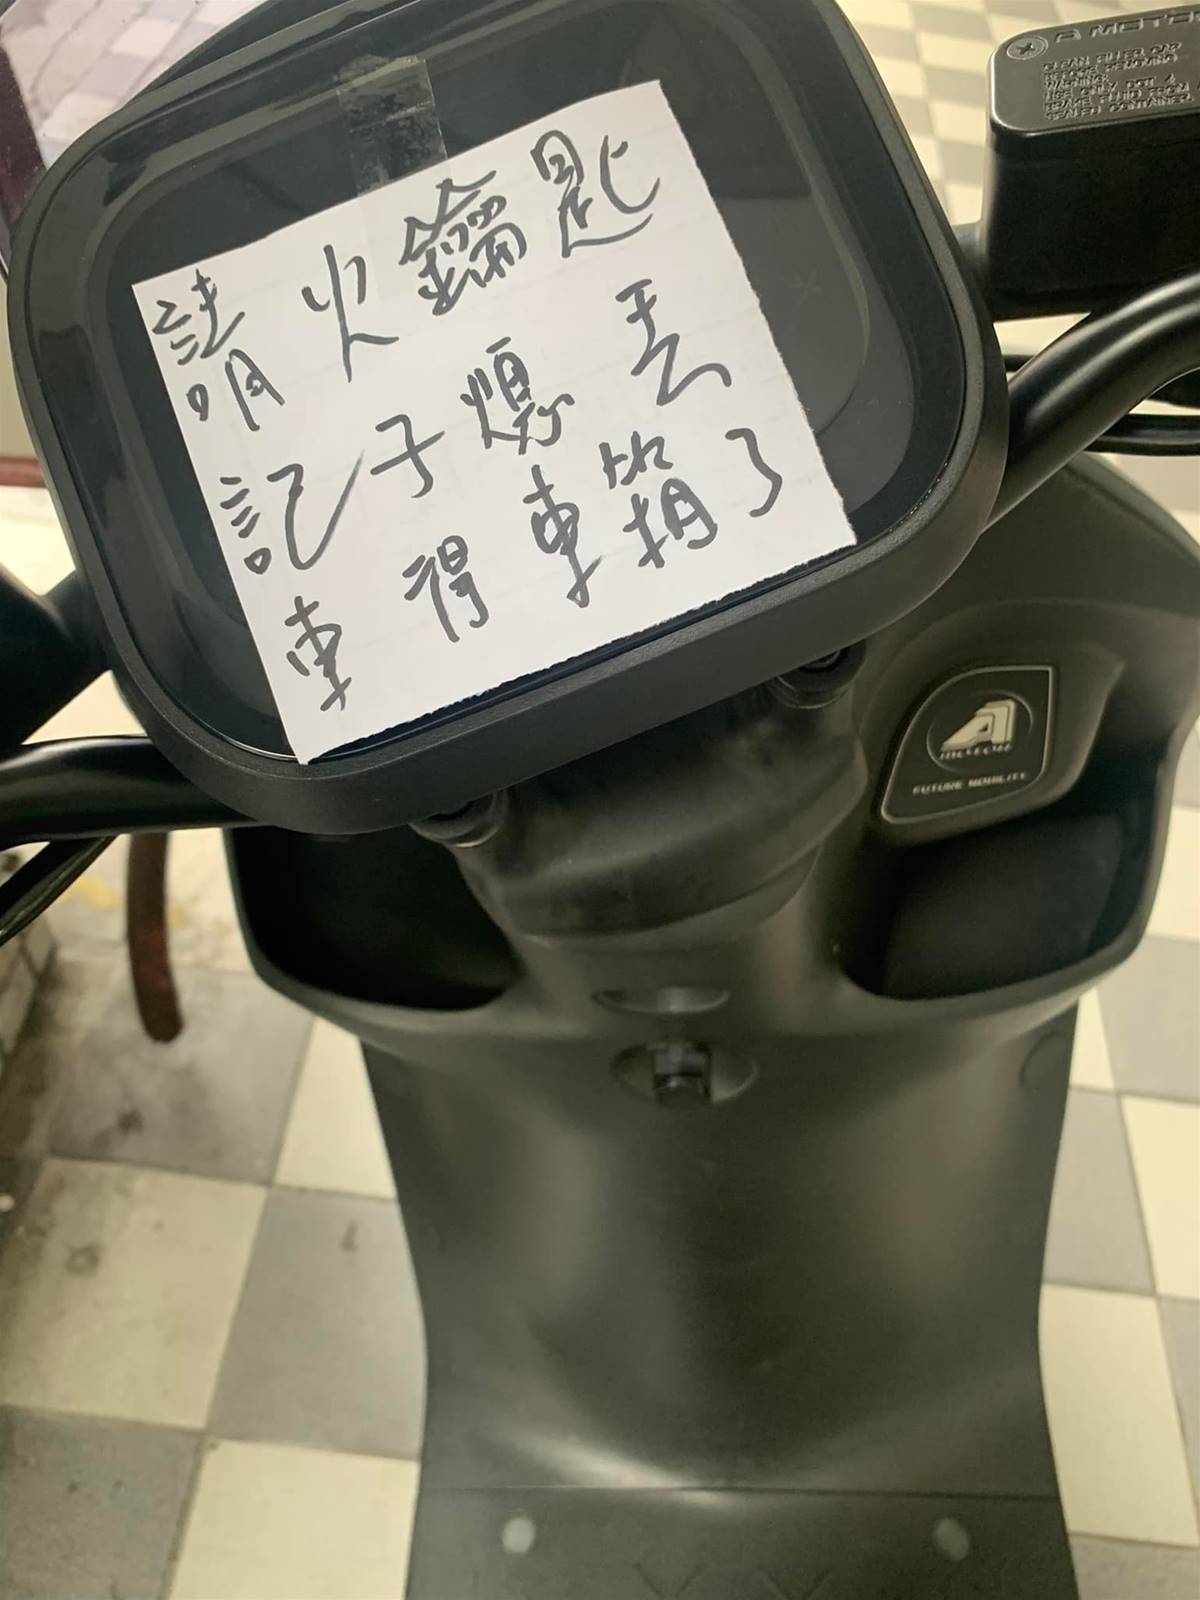 請火鑰匙
記子熄丟
車得車箱了
A MOTO
CLEAN FILLER CAP
BEFORE REMOVING
WARNING.
USE ONLY DOT 4
BRAKE FLUID FROM
SEALED CONTAINER.
FUTURE MOBILITY